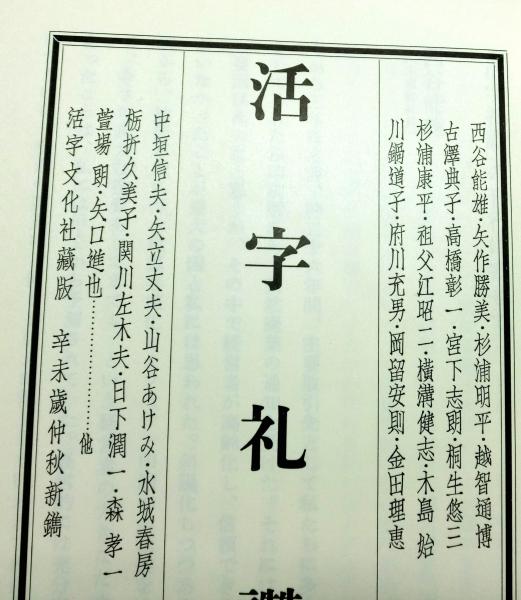 西谷能雄・矢作勝美・杉浦明平・越智通博
古澤典子・高橋彰一・宮下志朗・桐生悠三
杉浦康平・祖父江昭二・横溝健志・木島 始
川鍋道子・府川充男・岡留安則・金田理恵
活字礼讃
中垣信夫・矢立丈夫・山谷あけみ・水城春房
栃折久美子・関川左木夫・日下潤一・森 孝一
萱場 朗・矢口進也………………他
活字文化社藏版 辛未歲仲秋新鐫